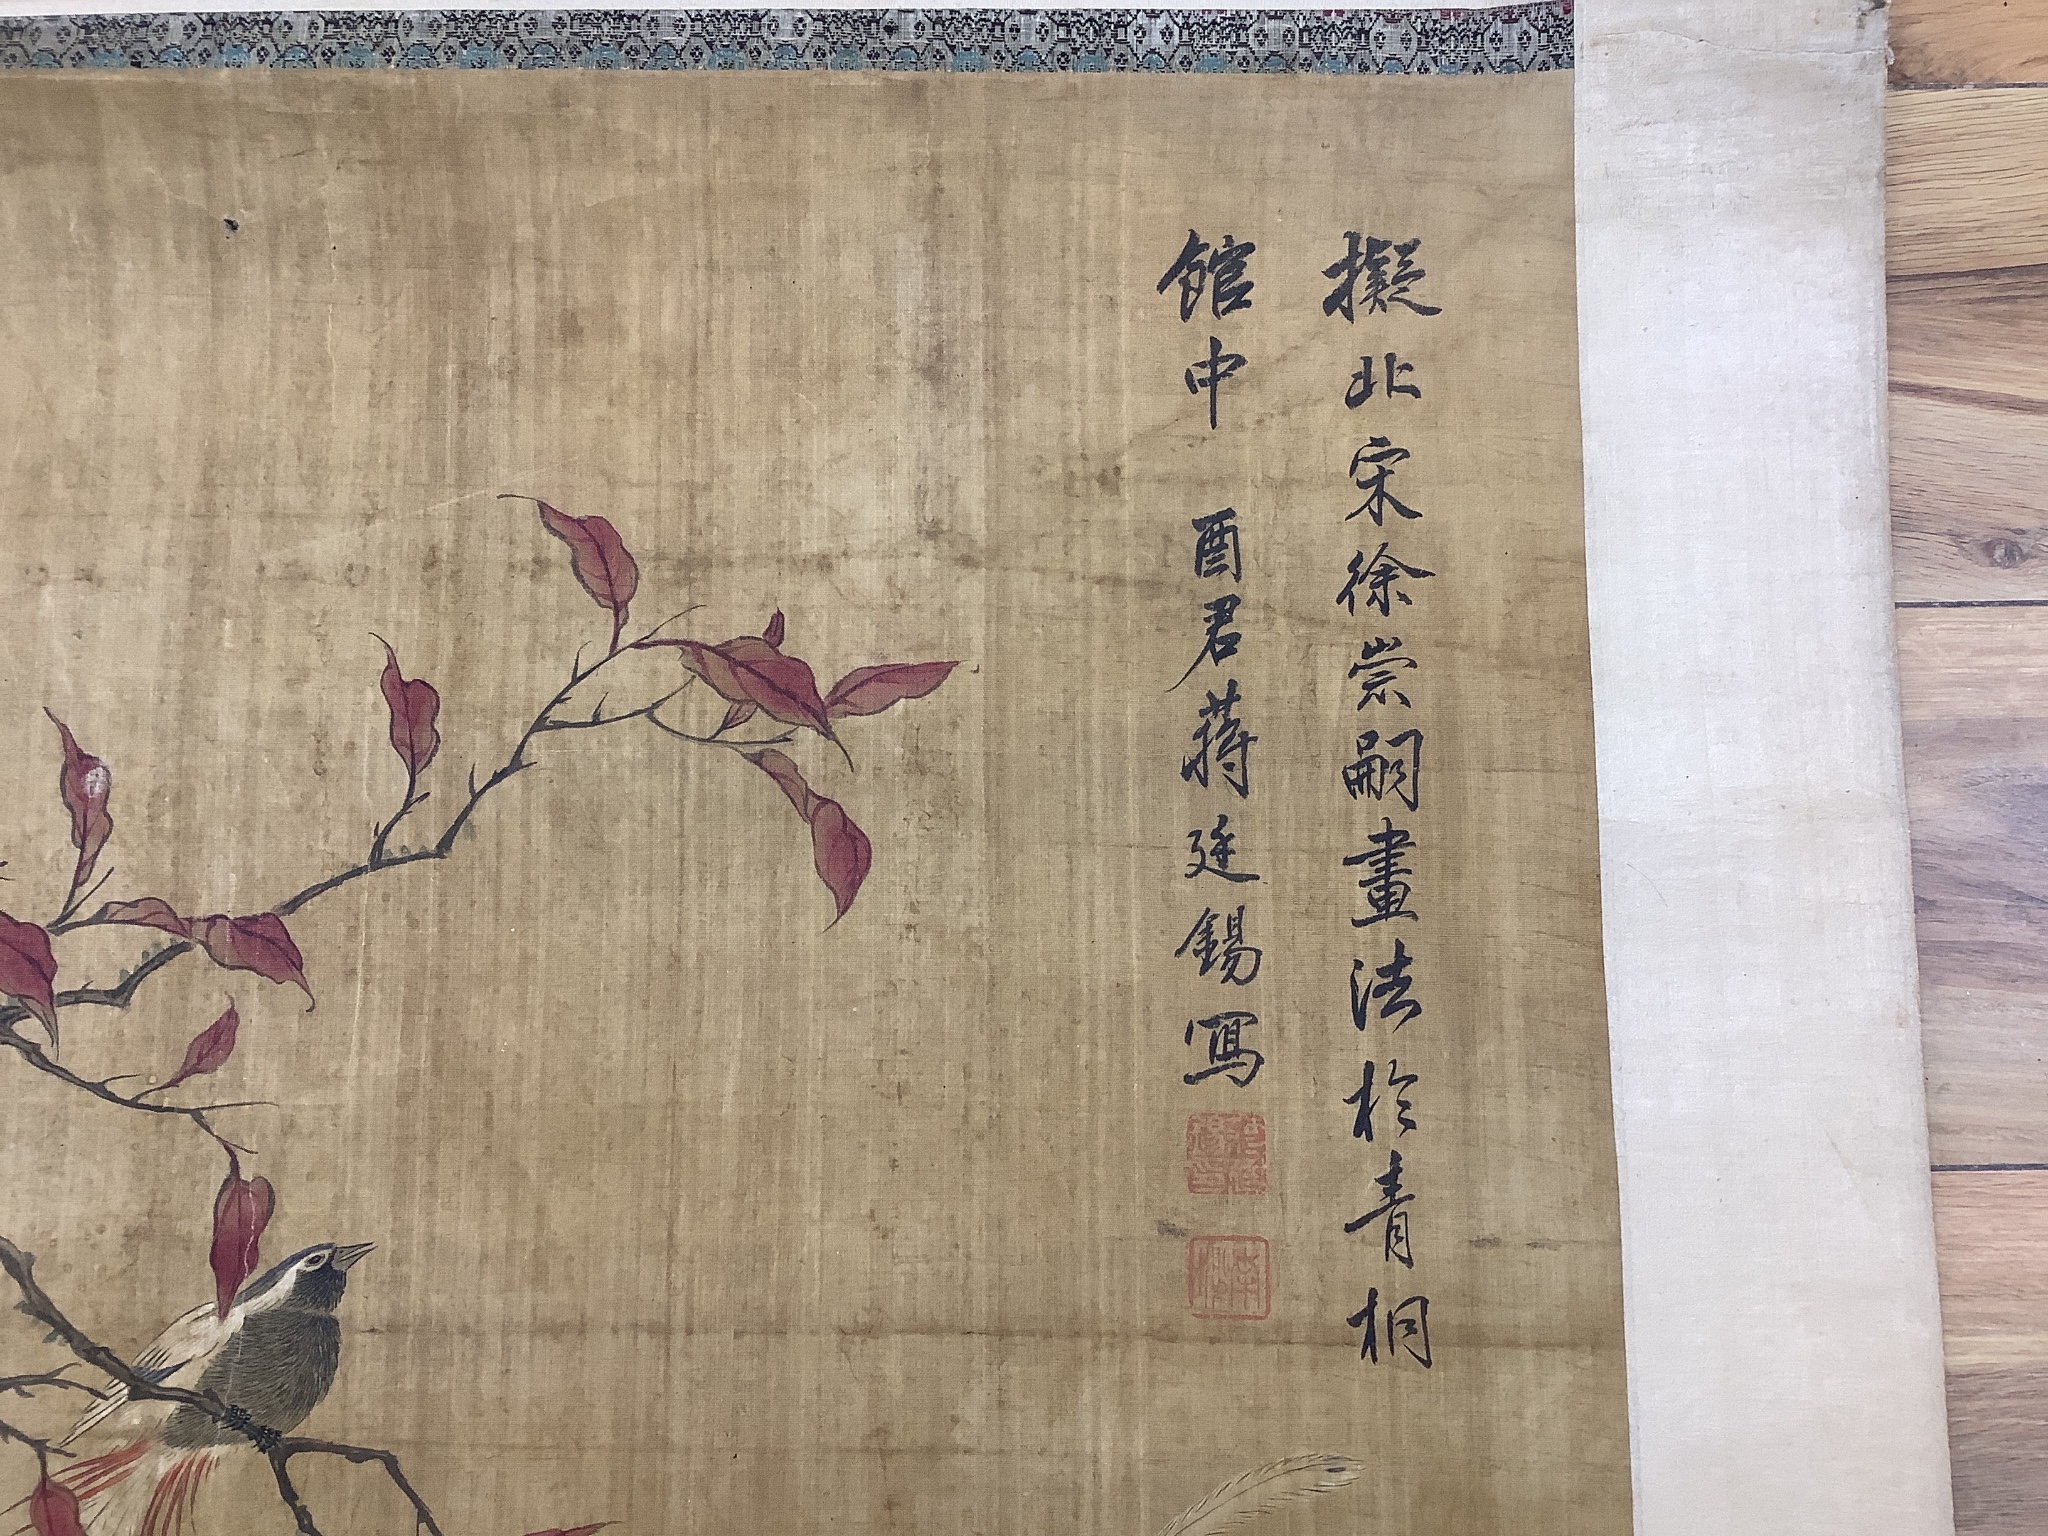 擬北宋徐崇嗣畫法於青桐
館中 酉君蔣廷錫寫